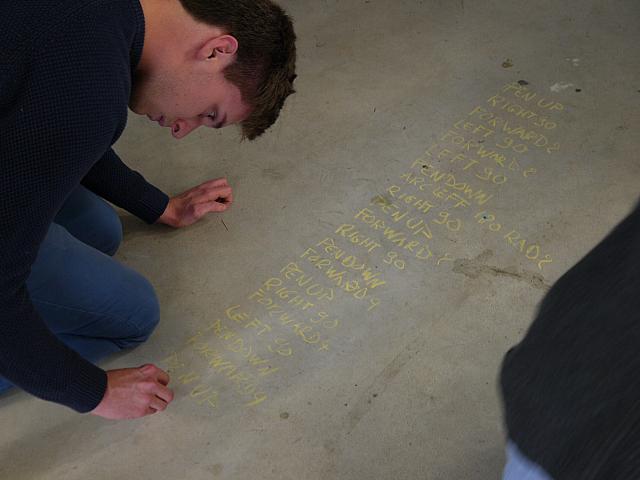 PEN UP
RIGHT 90
FORWARD 2
LEFT 90
FORWARD 2
LEFT 90
PENDOWN
ARCLEFT 180 RAD 2
RIGHT 90
PEN UP
FORWARD 2
RIGHT 90
PENDOWN
FORWARD 4
PEN UP
RIGHT 90
FORWARD 4
LEFT 90
PENDOWN
FORWARD 4
PEN UP